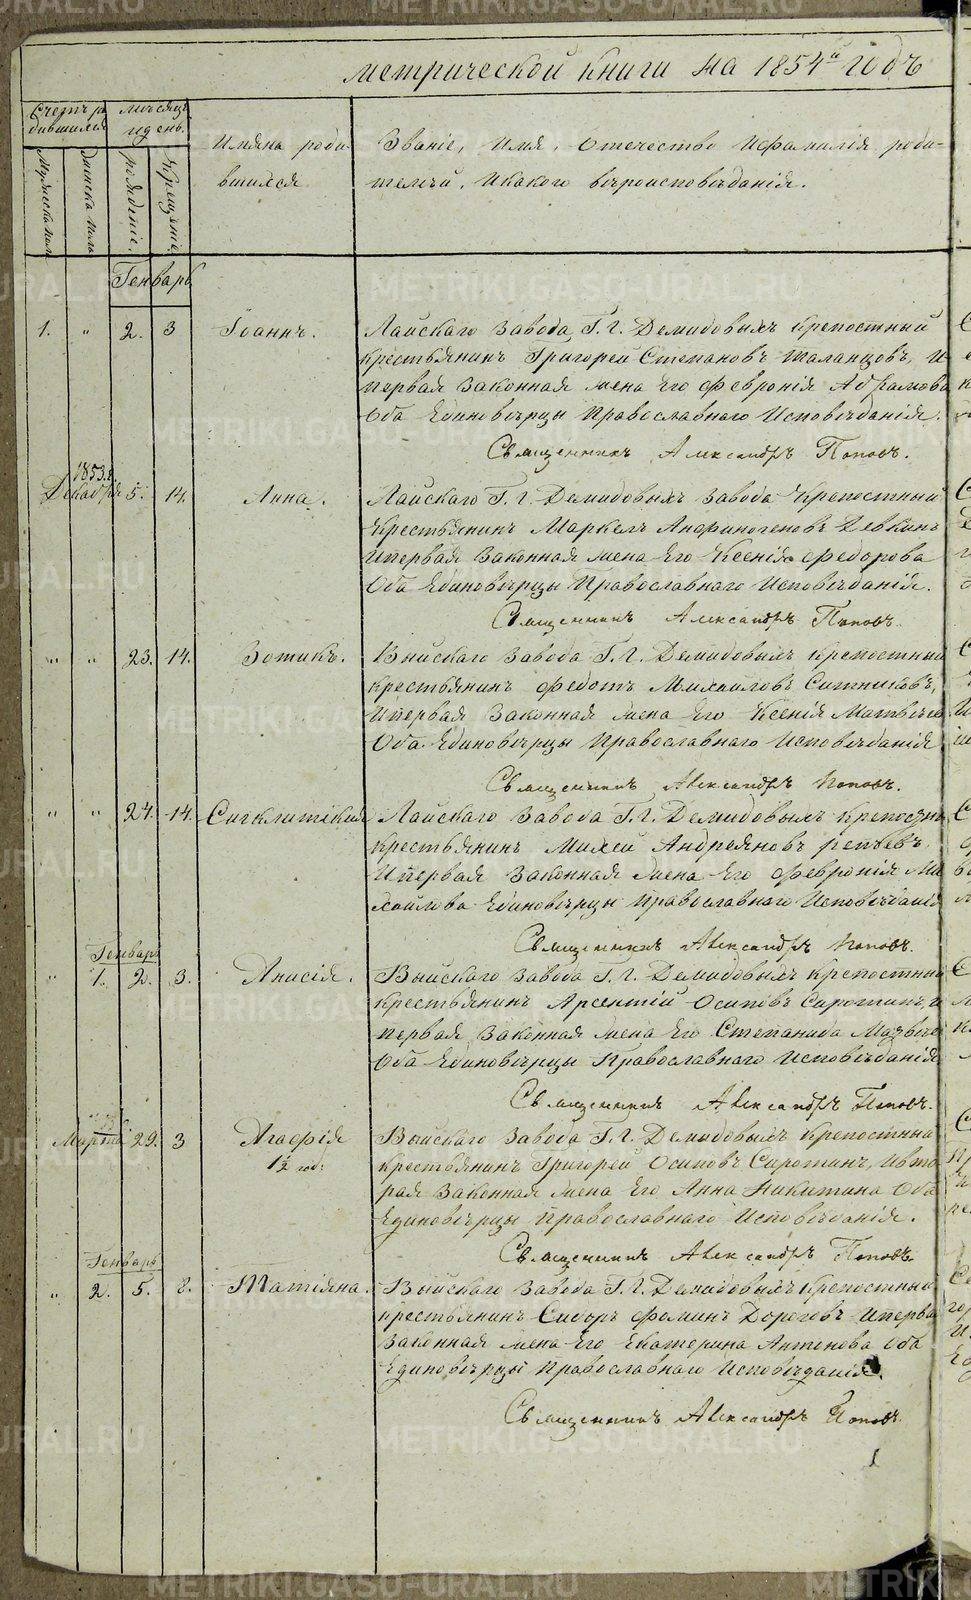 метрической книги на 1854й годъ
Счетъ ро
дившихся
мѣсяцъ
и день.
Имяна роди
вшихся
Званіе, Имя, Отечество И Фамилія роди-
телей, И какого вѣроисповѣданія.
Мужеска полъ
Женска полъ
рожденіе.
Крещеніе
Генварь
1. " 2. 3 Іоаннъ. Лайскаго Завода Г.Г. Демидовыхъ крепостный
крестьянинъ Григорей Степановъ Шаланцовъ, И
первая Законная жена Его Февронія Абрамова
Оба Единовѣрцы Православнаго Исповѣданія.
Священникъ Александръ Поповъ.
1853.
Декабря 5. 14. Анна. Лайскаго Г.Г. Демидовыхъ Завода Крепостный
Крестьянинъ Маркелъ Анфиногеновъ Девкинъ
И первая Законная жена Его Ксенія Федорова
Оба Единовѣрцы Православнаго Исповѣданія.
Священникъ Александръ Поповъ.
" " 23. 14. Зотикъ. Выйскаго Завода Г.Г. Демидовыхъ крепостный
крестьянинъ Федотъ Михаиловъ Ситниковъ,
И первая Законная жена Его Ксенія Матвѣева
Оба Единовѣрцы Православнаго Исповѣданія
Священникъ Александръ Поповъ.
" " 24. 14. Сигклитикія Лайскаго Завода Г.Г. Демидовыхъ крепостны
крестьянинъ Михей Андреяновъ репьевъ
И первая Законная жена Его Февронія Ми
хайлова Единовѣрцы Православнаго Исповѣданія
Священникъ Александръ Поповъ.
Генварь
" 1. 2. 3. Анисія. Выйскаго Завода Г.Г. Демидовыхъ крепостный
крестьянинъ Арсентій Осиповъ Сиротинъ, И
первая Законная жена Его Степанида Матвѣев
Оба Единовѣрцы Православнаго Исповѣданія
Священникъ Александръ Поповъ.
Марта 29. 3 Агафія Выйскаго Завода Г.Г. Демидовыхъ Крепостный
1½ год: крестьянинъ Григорей Осиповъ Сиротинъ, И вто
рая Законная жена Его Анна Никитина Оба
Единовѣрцы Православнаго Исповѣданія.
Священникъ Александръ Поповъ.
Генварь
" 2. 5. 8. Татіяна. Выйскаго Завода Г.Г. Демидовыхъ Крепостный
крестьянинъ Сидоръ Фоминъ Дороговъ И перва
Законная жена Его Екатерина Антонова Оба
Единовѣрцы Православнаго Исповѣданія.
Священникъ Александръ Поповъ.
METRIKI.GASO-URAL.RU